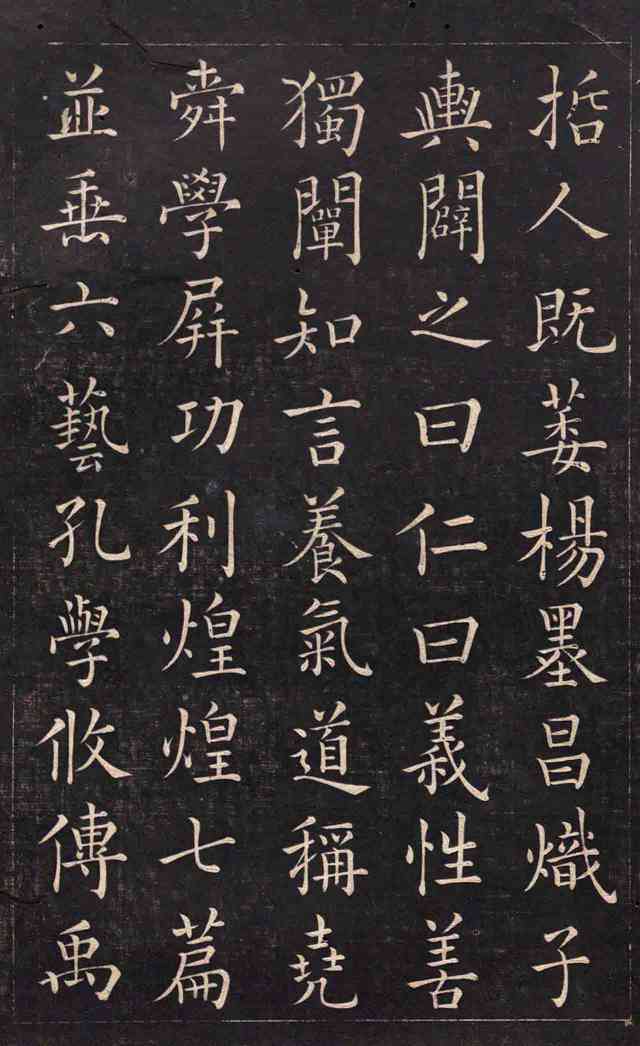 哲人既萎楊墨昌熾子
輿闢之曰仁曰義性善
獨闡知言養氣道稱堯
舜學屏功利煌煌七篇
並垂六藝孔學攸傳禹